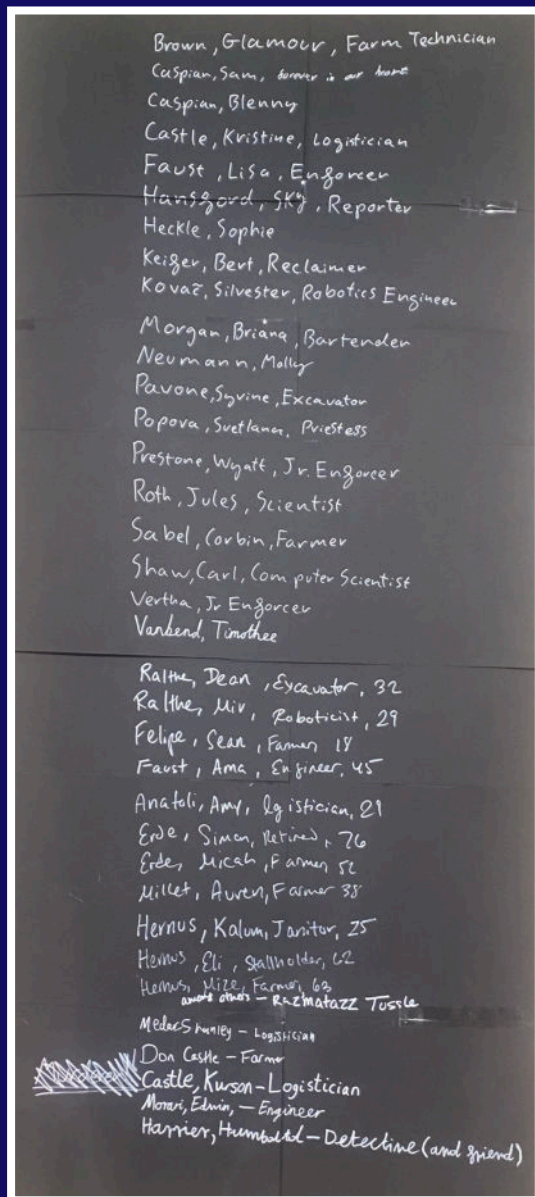 Brown, Glamour, Farm Technician
Caspian, Sam, forever in our heart
Caspian, Blenny
Castle, Kristine, Logistician
Faust, Lisa, Enforcer
Hansford, Sky, Reporter
Heckle, Sophie
Keifer, Bert, Reclaimer
Kovač, Silvester, Robotics Engineer
Morgan, Briana, Bartender
Neumann, Molly
Pavone, Syvine, Excavator
Popova, Svetlana, Priestess
Prestone, Wyatt, Jr. Enforcer
Roth, Jules, Scientist
Sabel, Corbin, Farmer
Shaw, Carl, Computer Scientist
Vertha, Jr Enforcer
Vanbend, Timothee
Ralthe, Dean, Excavator, 32
Ralthe, Miv, Roboticist, 29
Felipe, Sean, Farmer 18
Faust, Ama, Engineer, 45
Anatoli, Amy, lgistician, 21
Erde, Simon, Retired, 76
Erde, Micah, Farmer 52
Millet, Auren, Farmer 38
Hernus, Kalum, Janitor, 25
Hernus, Eli, Stallholder, 62
Hernus, Mize, Farmer, 63
among others - Razmatazz Tussle
Stanley - Logistician
Don Castle - Farmer
Castle, Kurson - Logistician
Morari, Edwin, - Engineer
Harrier, Humboltd - Detective (and friend)